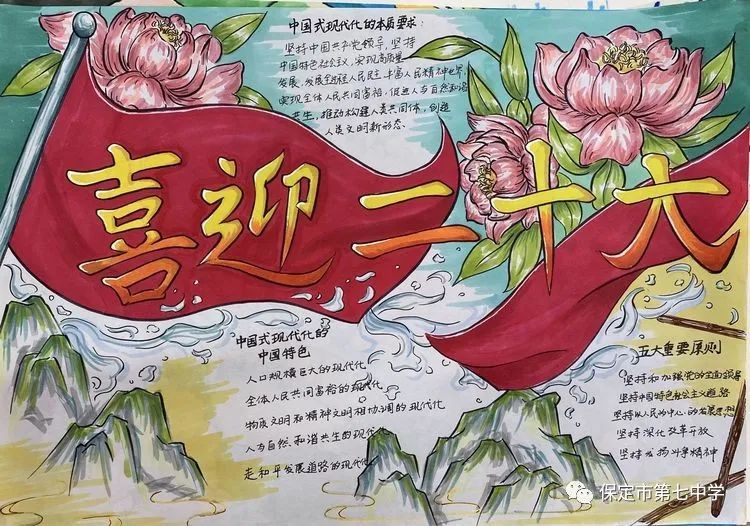 中国式现代化的本质要求:
坚持中国共产党领导,坚持
中国特色社会主义,实现高质量
发展,发展全过程人民民主,丰富人民精神世界,
实现全体人民共同富裕,促进人与自然和谐
共生,推动构建人类共同体,创造
人类文明新形态.
喜迎二十大
中国式现代化的
中国特色
人口规模巨大的现代化
全体人民共同富裕的现代化
物质文明和精神文明相协调的现代化
人与自然和谐共生的现代化
走和平发展道路的现代化
五大重要原则
坚持和加强党的全面领导
坚持中国特色社会主义道路
坚持以人民为中心的发展思想
坚持深化改革开放
坚持发扬斗争精神
保定市第七中学